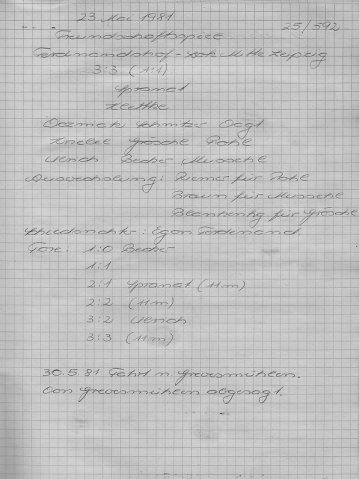 23 Mai 1981
25/592
Freundschaftsspiel
Ferdinandshof - Mitte Leipzig
3:3 (1:1)
Spranat
Schmitz Vogt
Grösche Pohle
Ulrich Becher Mussehle
Auswechslung: Riemer für Pohle
Braun für Mussehle
für Grösche
Schiedsrichter: Egon Ferdinand
Tore: 1:0 Becher
1:1
2:1 Spranat (11m)
2:2 (11m)
3:2 Ulrich
3:3 (11m)
30.5.81 Fahrt n. Grevesmühlen.
Von Grevesmühlen abgesagt.